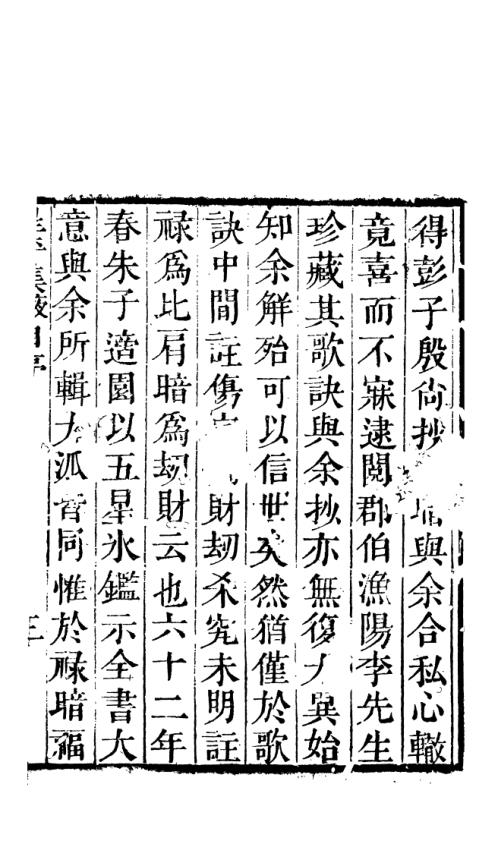 得彭子殷尙抄增與余合私心轍
竟喜而不寐逮閱郡伯漁陽李先生
珍藏其歌訣與余抄亦無復大異始
知余解殆可以信世矣然猶僅於歌
訣中間註傷官財劫杀究未明註
祿爲比肩暗爲刼財云也六十二年
春朱子適園以五星氷鑑示全書大
意與余所輯大派皆同惟於祿暗福
集
三